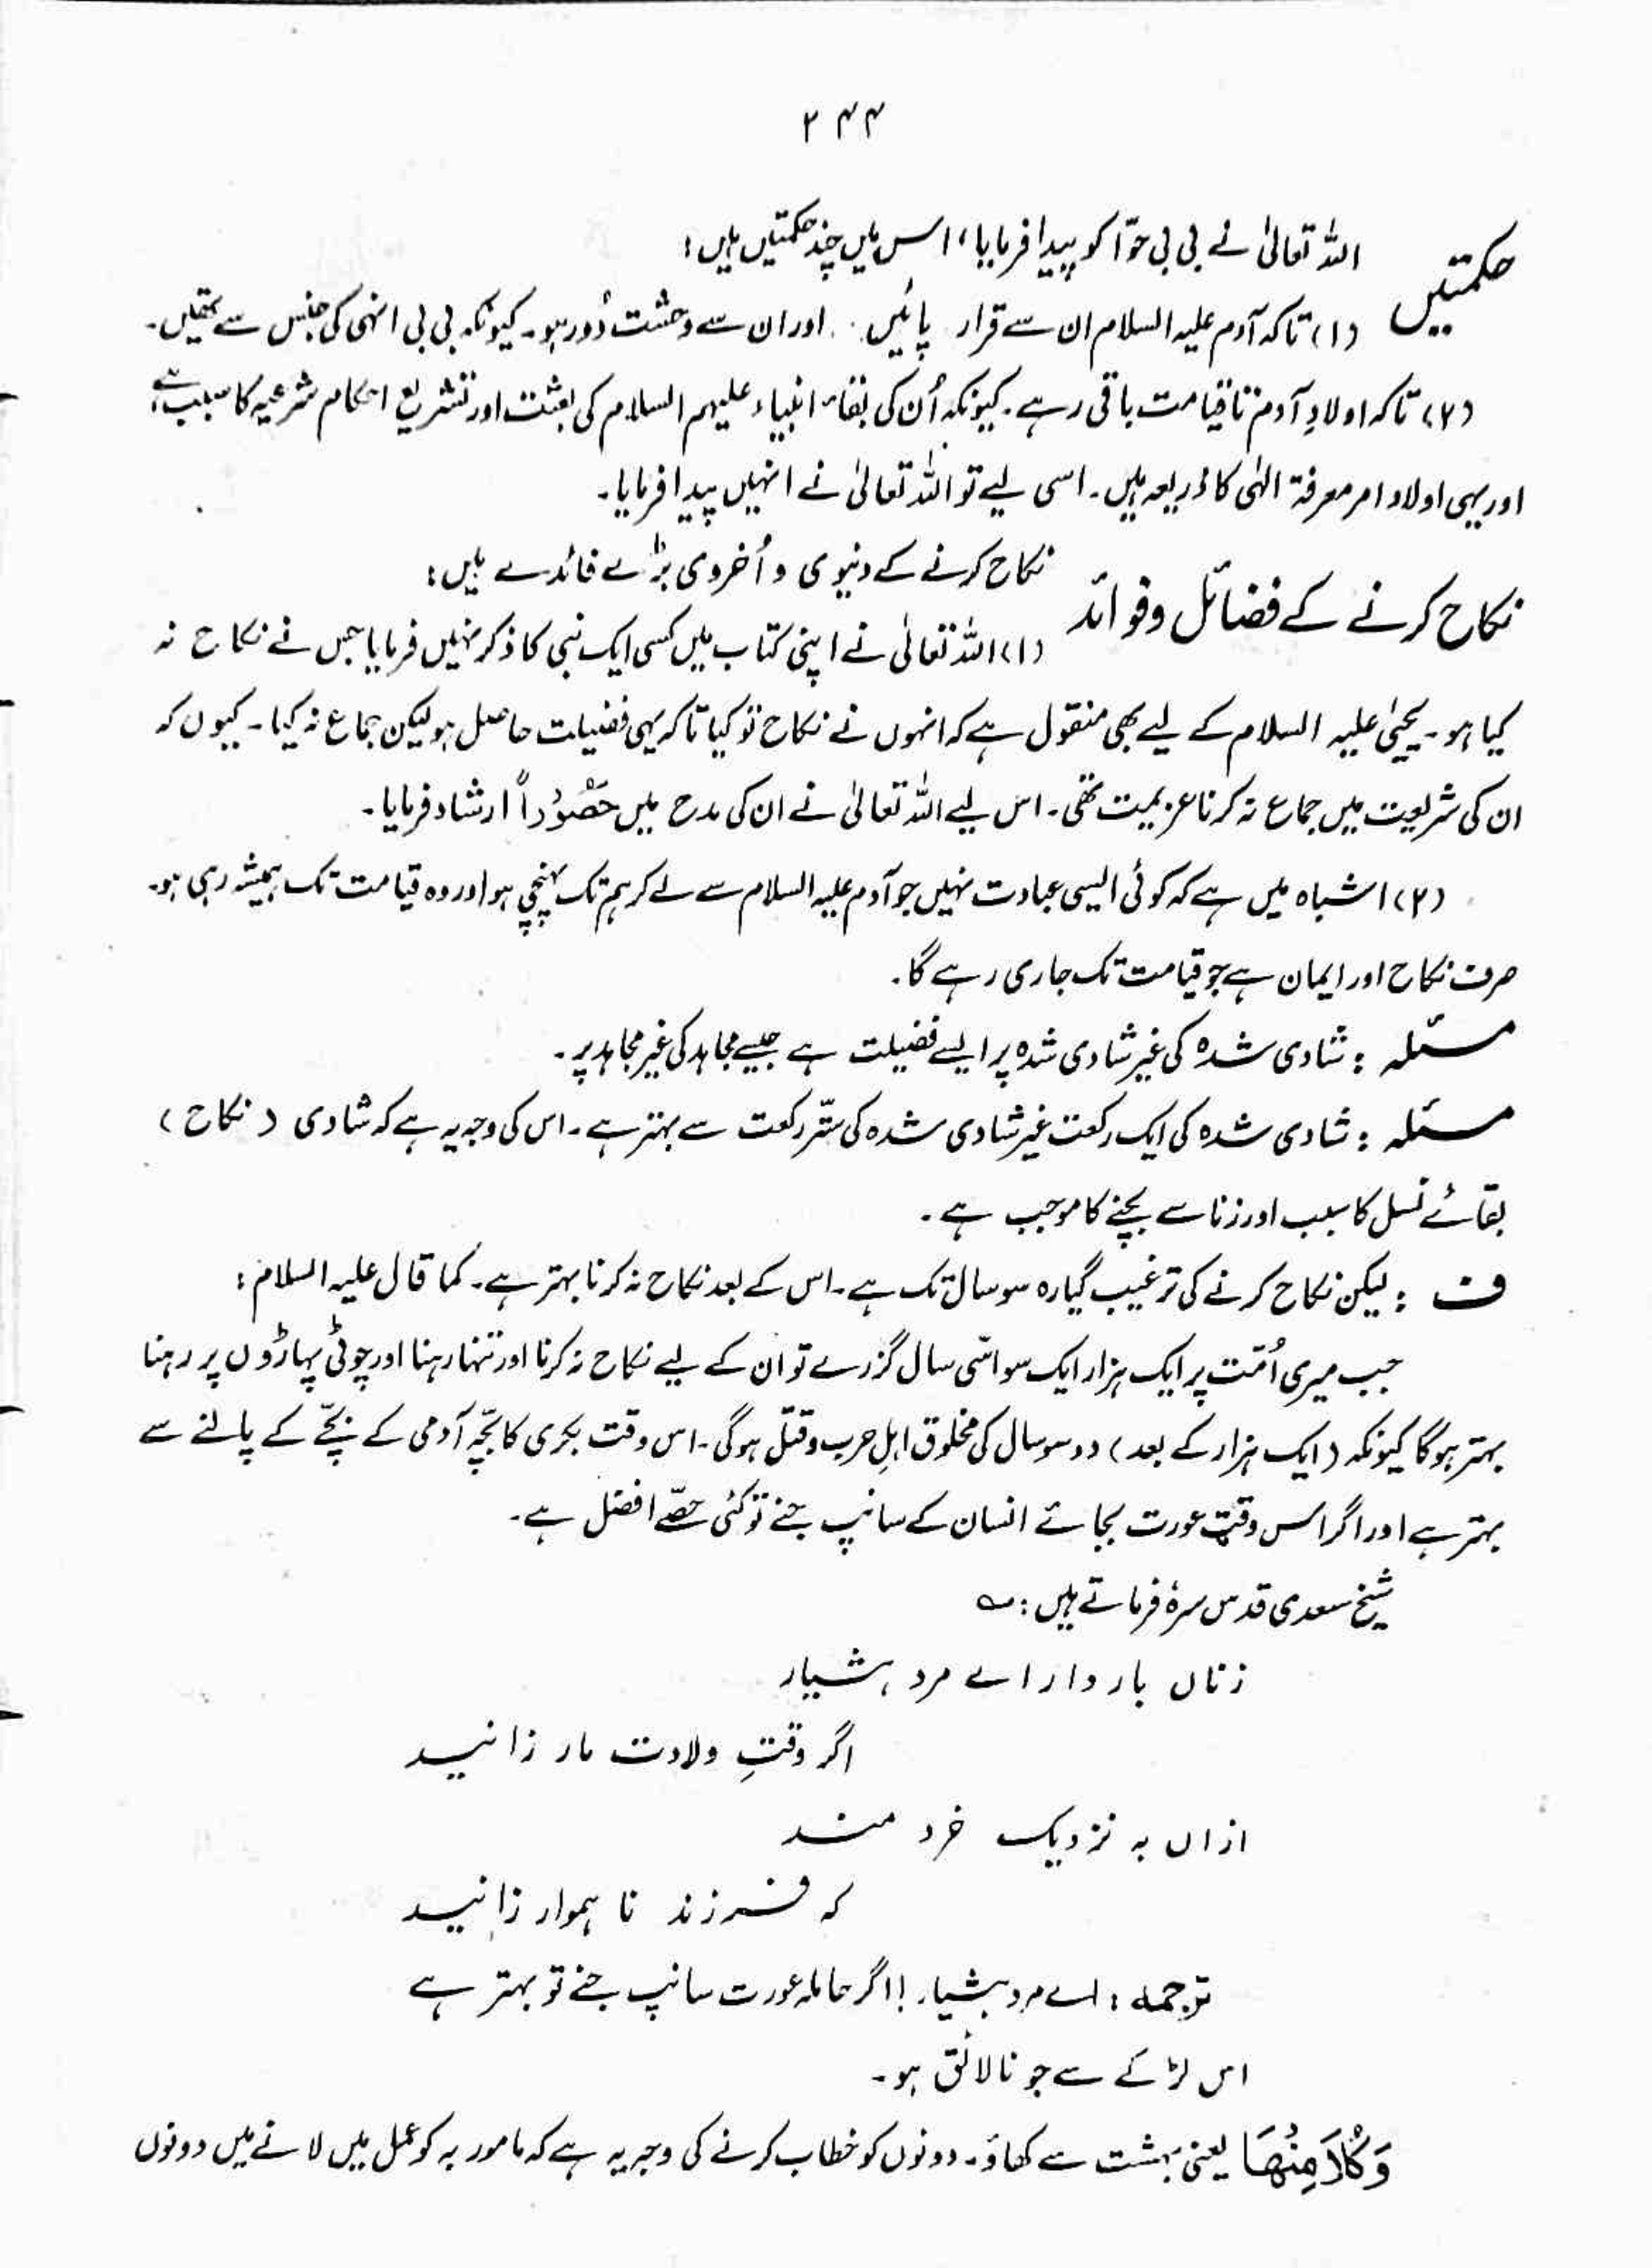 ۲۴۴
حکمتیں اللہ تعالیٰ نے بی بی حوّا کو پیدا فرمایا، اس میں چند حکمتیں ہیں:
(۱) تاکہ آدم علیہ السلام ان سے قرار پائیں۔ اور ان سے وحشت دُور ہو۔ کیونکہ بی بی انہی کی جنس سے تھیں۔
(۲) تاکہ اولادِ آدم تا قیامت باقی رہے۔ کیونکہ اُن کی بقاء انبیاء علیہم السلام کی بعثت اور تشریع احکام شرعیہ کا سبب ہے
اور یہی اولاد امر معرفۃ الٰہی کا ذریعہ ہیں۔ اسی لیے تو اللہ تعالیٰ نے انہیں پیدا فرمایا۔
نکاح کرنے کے فضائل و فوائد نکاح کرنے کے دنیوی و اُخروی بڑے فائدے ہیں:
(۱) اللہ تعالیٰ نے اپنی کتاب میں کسی ایک نبی کا ذکر نہیں فرمایا جس نے نکاح نہ
کیا ہو۔ یحییٰ علیہ السلام کے لیے بھی منقول ہے کہ انہوں نے نکاح تو کیا تاکہ یہی فضیلت حاصل ہو لیکن جماع نہ کیا۔ کیوں کہ
ان کی شریعت میں جماع نہ کرنا عزیمت تھی۔ اس لیے اللہ تعالیٰ نے ان کی مدح میں حَصُوْرًا ارشاد فرمایا۔
(۲) اشباہ میں ہے کہ کوئی ایسی عبادت نہیں جو آدم علیہ السلام سے لے کر ہم تک پہنچی ہو اور وہ قیامت تک ہمیشہ رہی ہو۔
صرف نکاح اور ایمان ہے جو قیامت تک جاری رہے گا۔
مسئلہ : شادی شدہ کی غیر شادی شدہ پر ایسے فضیلت ہے جیسے مجاہد کی غیر مجاہد پر۔
مسئلہ : شادی شدہ کی ایک رکعت غیر شادی شدہ کی ستّر رکعت سے بہتر ہے۔ اس کی وجہ یہ ہے کہ شادی (نکاح)
بقائے نسل کا سبب اور زنا سے بچنے کا موجب ہے۔
ف : لیکن نکاح کرنے کی ترغیب گیارہ سو سال تک ہے۔ اس کے بعد نکاح نہ کرنا بہتر ہے۔ کما قال علیہ السلام:
جب میری اُمّت پر ایک ہزار ایک سو اسّی سال گزرے تو ان کے لیے نکاح نہ کرنا اور تنہا رہنا اور چوٹی پہاڑوں پر رہنا
بہتر ہوگا کیونکہ (ایک ہزار کے بعد) دو سو سال کی مخلوق اہلِ حرب و قتل ہوگی۔ اس وقت بکری کا بچّہ آدمی کے بچّے کے پالنے سے
بہتر ہے اور اگر اس وقت عورت بجائے انسان کے سانپ جنے تو کئی حصّے افضل ہے۔
شیخ سعدی قدس سرہٗ فرماتے ہیں: ؎
زنان باردار اے مرد ہشیار
اگر وقتِ ولادت مار زائید
ازاں بہ نزدیک خرد مند
کہ فرزند نا ہموار زائید
ترجمہ : اے مرد ہشیار! اگر حاملہ عورت سانپ جنے تو بہتر ہے
اس لڑکے سے جو نالائق ہو۔
وَكُلَا مِنْهَا یعنی بہشت سے کھاؤ۔ دونوں کو خطاب کرنے کی وجہ یہ ہے کہ مامور بہ کو عمل میں لانے میں دونوں